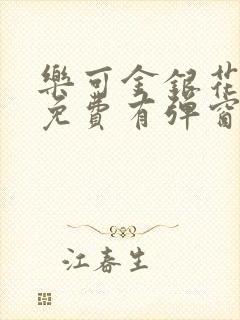 樂可金銀花
免費有彈窗
江春生